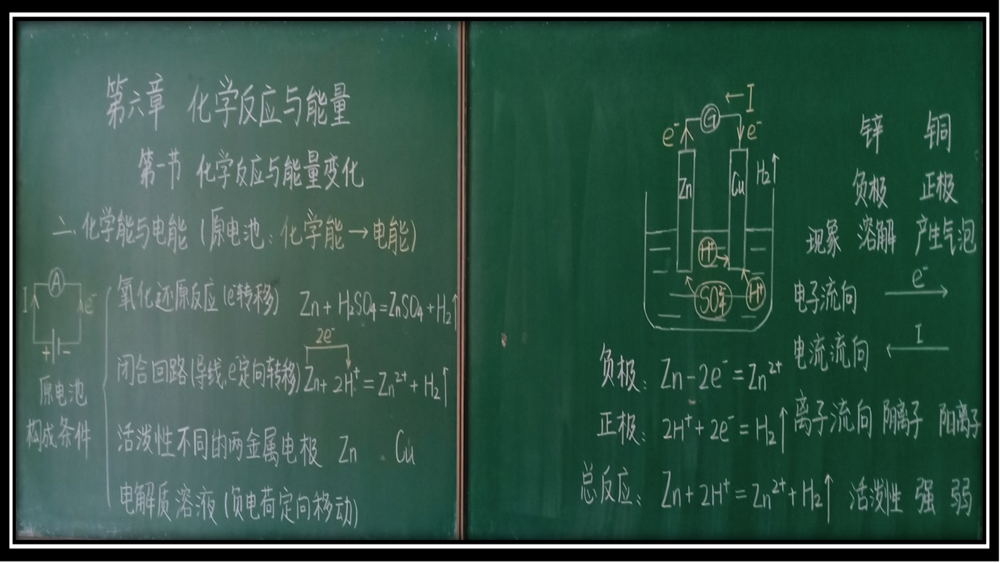 第六章 化学反应与能量
第一节 化学反应与能量变化
二、化学能与电能(原电池:化学能→电能)
A
I e⁻
+ -
原电池
构成条件
氧化还原反应(e⁻转移) Zn+H₂SO₄=ZnSO₄+H₂↑
2e⁻
闭合回路(导线,e⁻定向转移) Zn+2H⁺=Zn²⁺+H₂↑
活泼性不同的两金属电极 Zn Cu
电解质溶液(负电荷定向移动)
←I
G
e⁻ e⁻
Zn Cu H₂↑
H⁺
SO₄²⁻ H⁺
锌 铜
负极 正极
现象 溶解 产生气泡
电子流向 e⁻ →
电流流向 ← I
离子流向 阴离子 阳离子
活泼性 强 弱
负极:Zn-2e⁻=Zn²⁺
正极:2H⁺+2e⁻=H₂↑
总反应:Zn+2H⁺=Zn²⁺+H₂↑